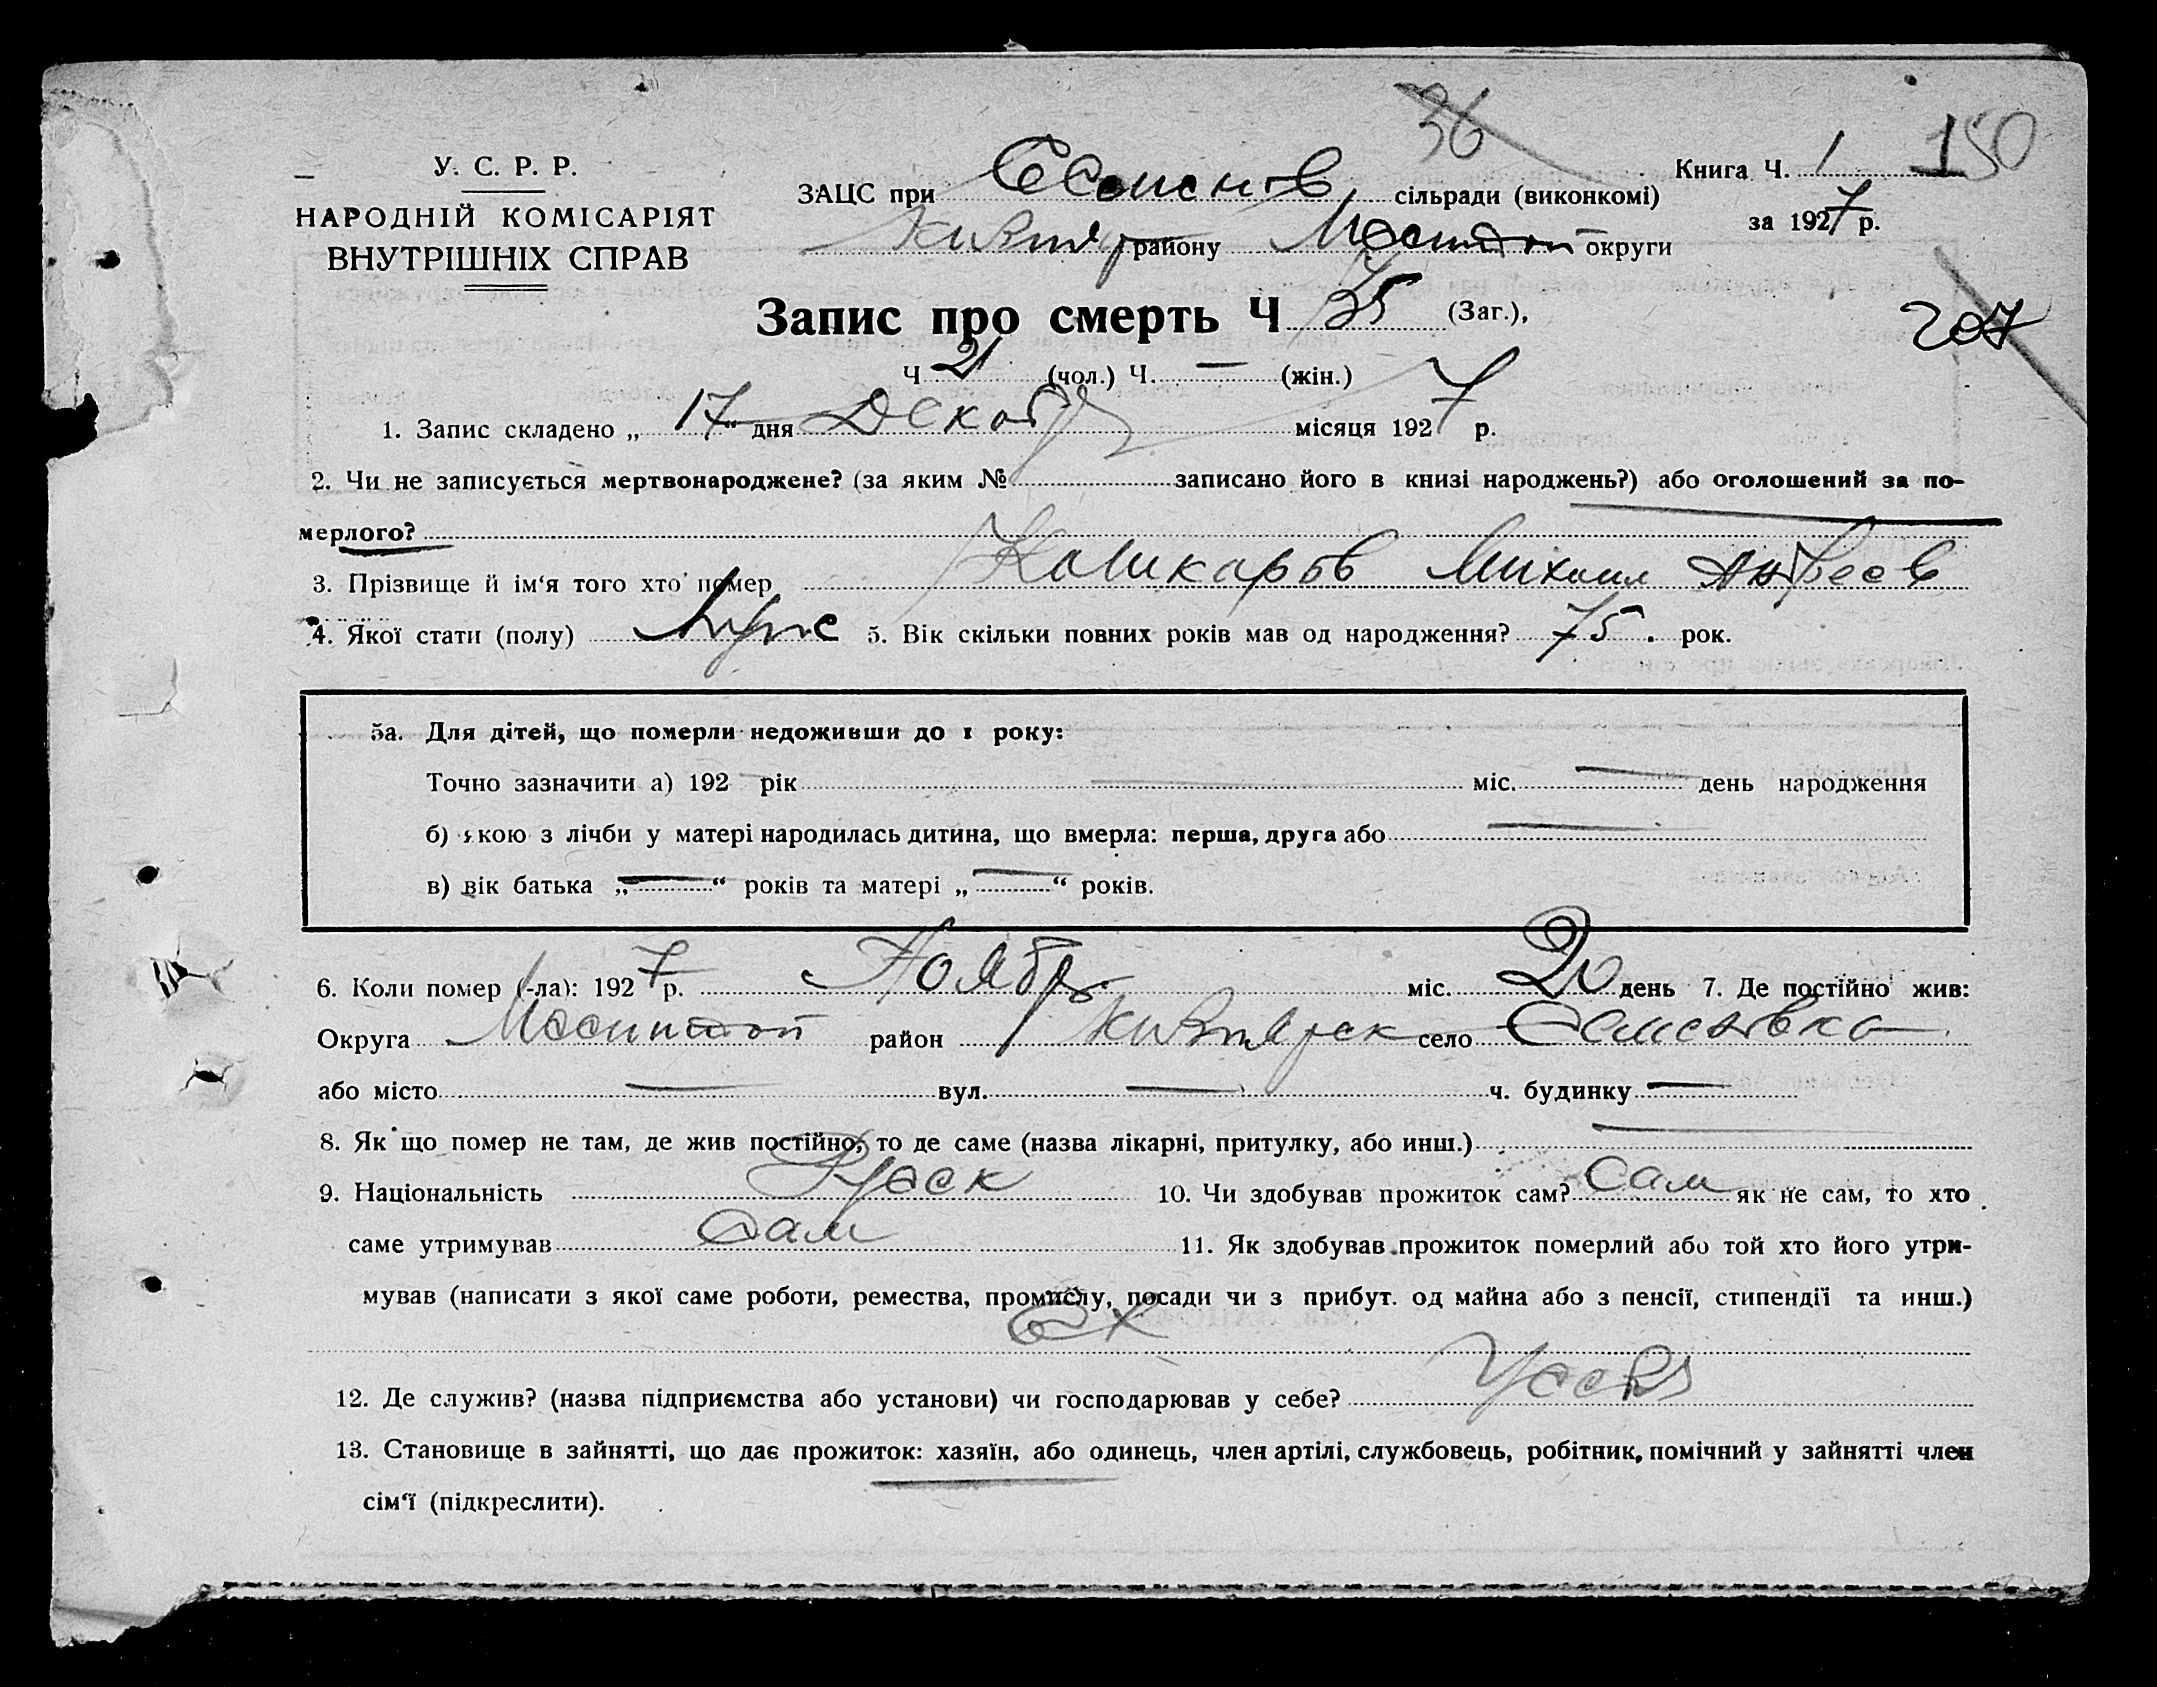 36
У. С. Р. Р.
НАРОДНІЙ КОМІСАРІЯТ
ВНУТРІШНІХ СПРАВ
Книга Ч. 1 150
ЗАЦС при Семенов сільради (виконкомі)
за 1927 р.
району округи
Запис про смерть Ч 35 (Заг.),
207
Ч 21 (чол.) Ч. — (жін.)
1. Запис складено „ 17 “ дня Декабр місяця 1927 р.
2. Чи не записується мертвонароджене? (за яким № записано його в книзі народжень?) або оголошений за по-
мерлого?
3. Прізвище й ім‘я того хто помер Кошкаров Михаил Андреев
4. Якої стати (полу) Муж 5. Вік скільки повних років мав од народження? 75 . рок.
5а. Для дітей, що померли недоживши до 1 року:
Точно зазначити а) 192 рік — міс. — день народження
б) якою з лічби у матері народилась дитина, що вмерла: перша, друга або —
в) вік батька „ — “ років та матері „ — “ років.
6. Коли помер (-ла): 1927 р. Ноябр міс. 20 день 7. Де постійно жив:
Округа район село Семеновка
або місто — вул. — ч. будинку —
8. Як що помер не там, де жив постійно, то де саме (назва лікарні, притулку, або инш.) —
9. Національність Русск 10. Чи здобував прожиток сам? Сам як не сам, то хто
саме утримував Сам 11. Як здобував прожиток померлий або той хто його утри-
мував (написати з якої саме роботи, ремества, промислу, посади чи з прибут. од майна або з пенсії, стипендії та инш.)
СХ
12. Де служив? (назва підприємства або установи) чи господарював у себе? У себя
13. Становище в зайнятті, що дає прожиток: хазяїн, або одинець, член артілі, службовець, робітник, помічний у зайнятті член
сім‘ї (підкреслити).